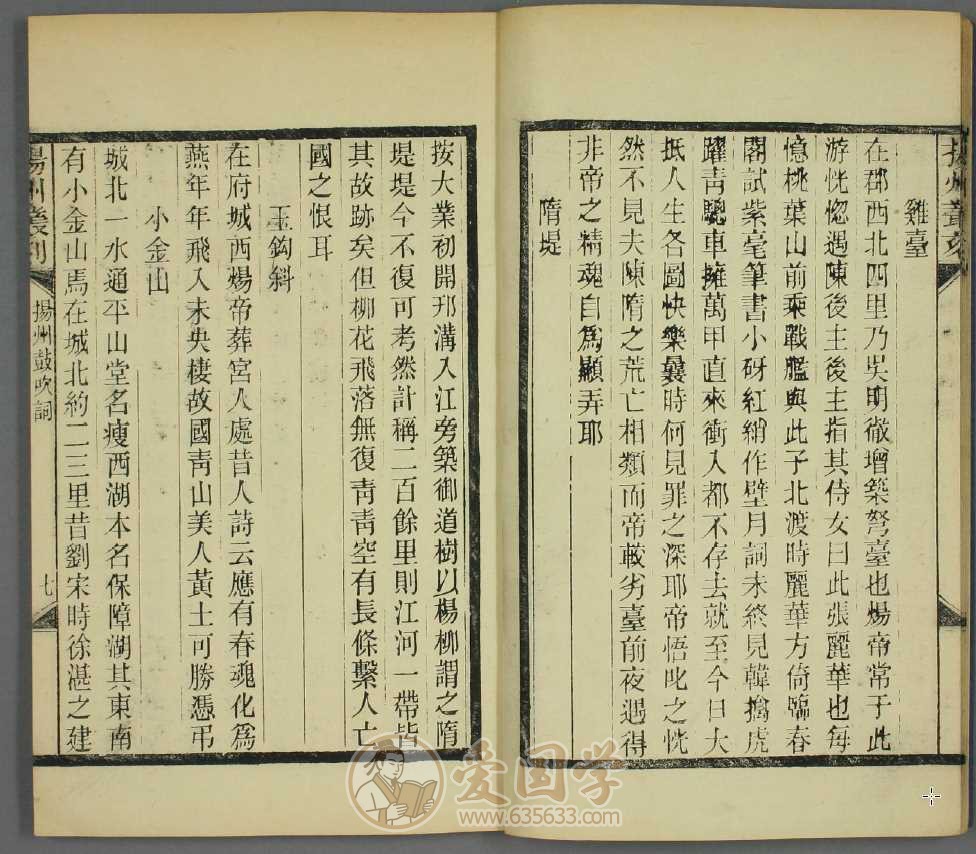 揚州叢刻
雞臺
在郡西北四里乃吳明徹增築弩臺也煬帝常于此
游恍惚遇陳後主後主指其侍女曰此張麗華也每
憶桃葉山前乘戰艦與此子北渡時麗華方倚臨春
閣試紫毫筆書小砑紅綃作壁月詞未終見韓擒虎
躍青驄車擁萬甲直來衝入都不存去就至今日大
抵人生各圖快樂曩時何見罪之深耶帝悟叱之恍
然不見夫陳隋之荒亡相類而帝較劣臺前夜遇得
非帝之精魂自為顯弄耶
隋堤
按大業初開邗溝入江旁築御道樹以楊柳謂之隋
堤堤今不復可考然計稱二百餘里則江河一帶皆
其故跡矣但柳花飛落無復青青空有長條繫人亡
國之恨耳
玉鈎斜
在府城西煬帝葬宮人處昔人詩云應有春魂化為
燕年年飛入未央棲故國青山美人黃土可勝憑弔
小金山
城北一水通平山堂名瘦西湖本名保障湖其東南
有小金山焉在城北約二三里昔劉宋時徐湛之建
揚州叢刻
揚州鼓吹詞
七
爱国学
www.635633.com